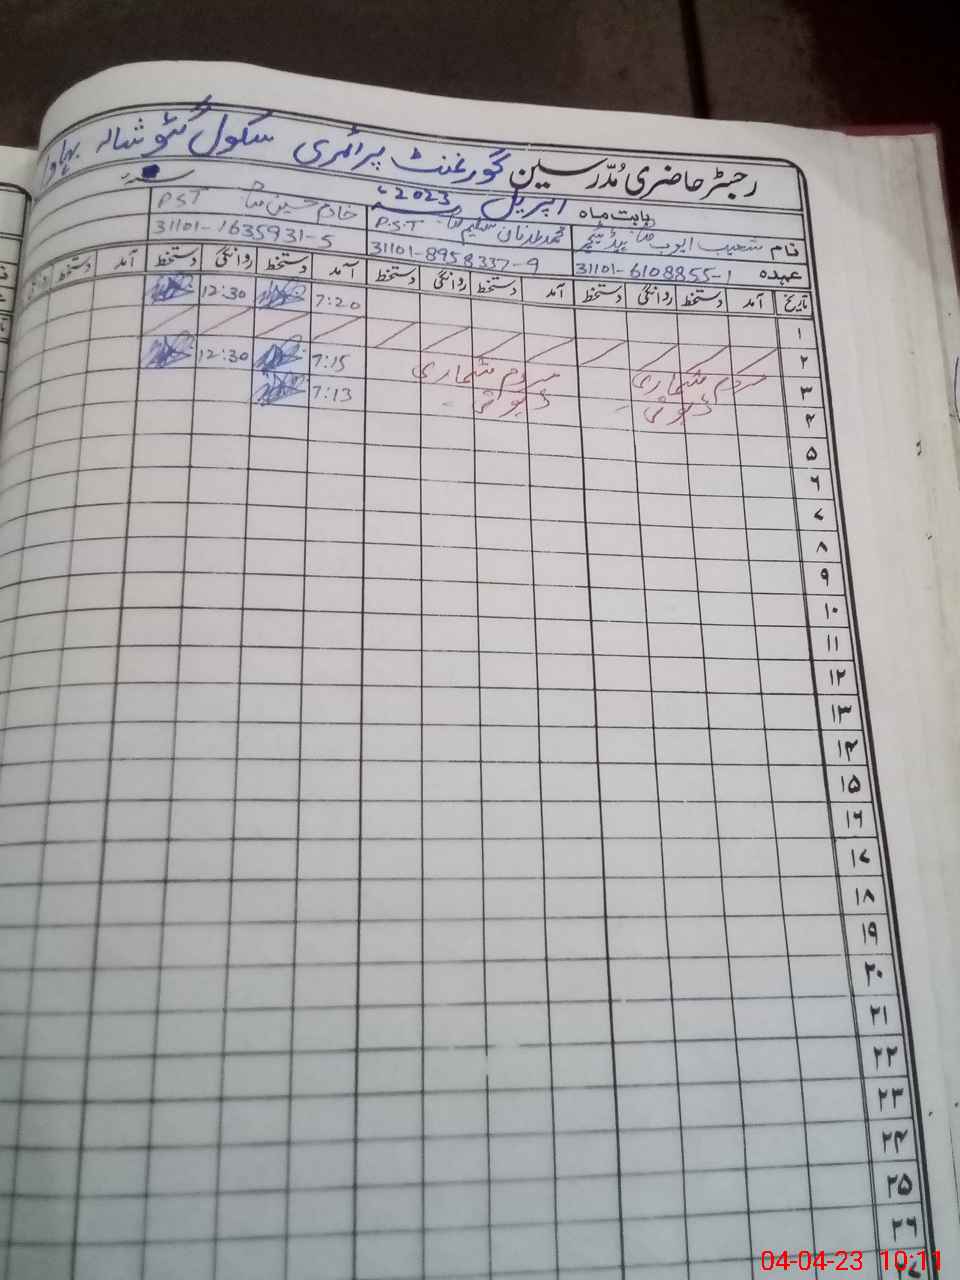 رجسٹر حاضری مُدّرسین گورنمنٹ پرائمری سکول گئو شالہ
بابت ماہ اپریل 2023ء
نام شعیب ایوب محمد عدنان سلیم P.S.T خادم حسین P.S.T
عہدہ 31101-6108855-1 31101-8958337-9 31101-1635931-5
تاریخ آمد دستخط روانگی دستخط آمد دستخط روانگی دستخط آمد دستخط روانگی دستخط آمد دستخط
۱ 7:20 12:30
۲
۳ مردم شماری مردم شماری 7:15 12:30
۴ ڈیوٹی ڈیوٹی 7:13
۵
۶
۷
۸
۹
۱۰
۱۱
۱۲
۱۳
۱۴
۱۵
۱۶
۱۷
۱۸
۱۹
۲۰
۲۱
۲۲
۲۳
۲۴
۲۵
۲۶
04-04-23 10:11